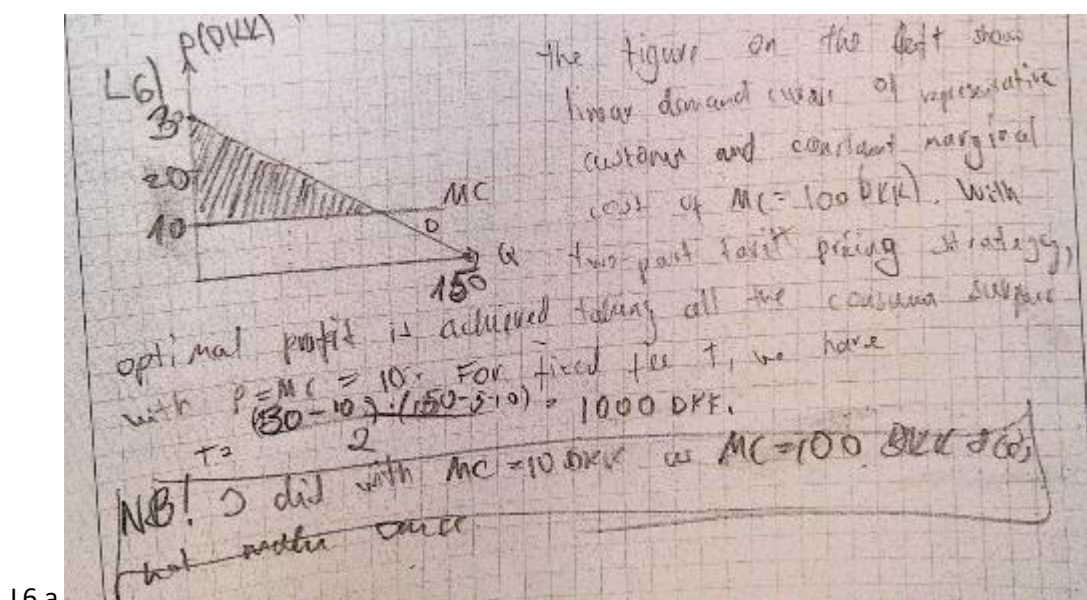 P(DKK)
L6)
30
20
10
MC
D
Q
150
the figure on the left show
linear demand curve of representative
customer and constant marginal
cost of MC = 100 DKK). With
two-part tariff pricing strategy,
optimal profit is achieved taking all the consumer surplus
with P=MC = 10. For fixed fee T, we have
T= (30-10)·(150-5·10) = 1000 DKK.
2
NB! I did with MC=10 DKK as MC=100 DKK
not
L6 a